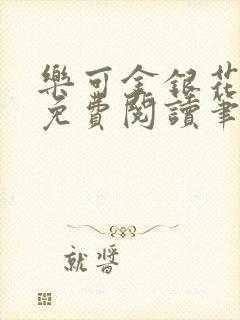 樂可金銀花
免費閱讀筆
就醬